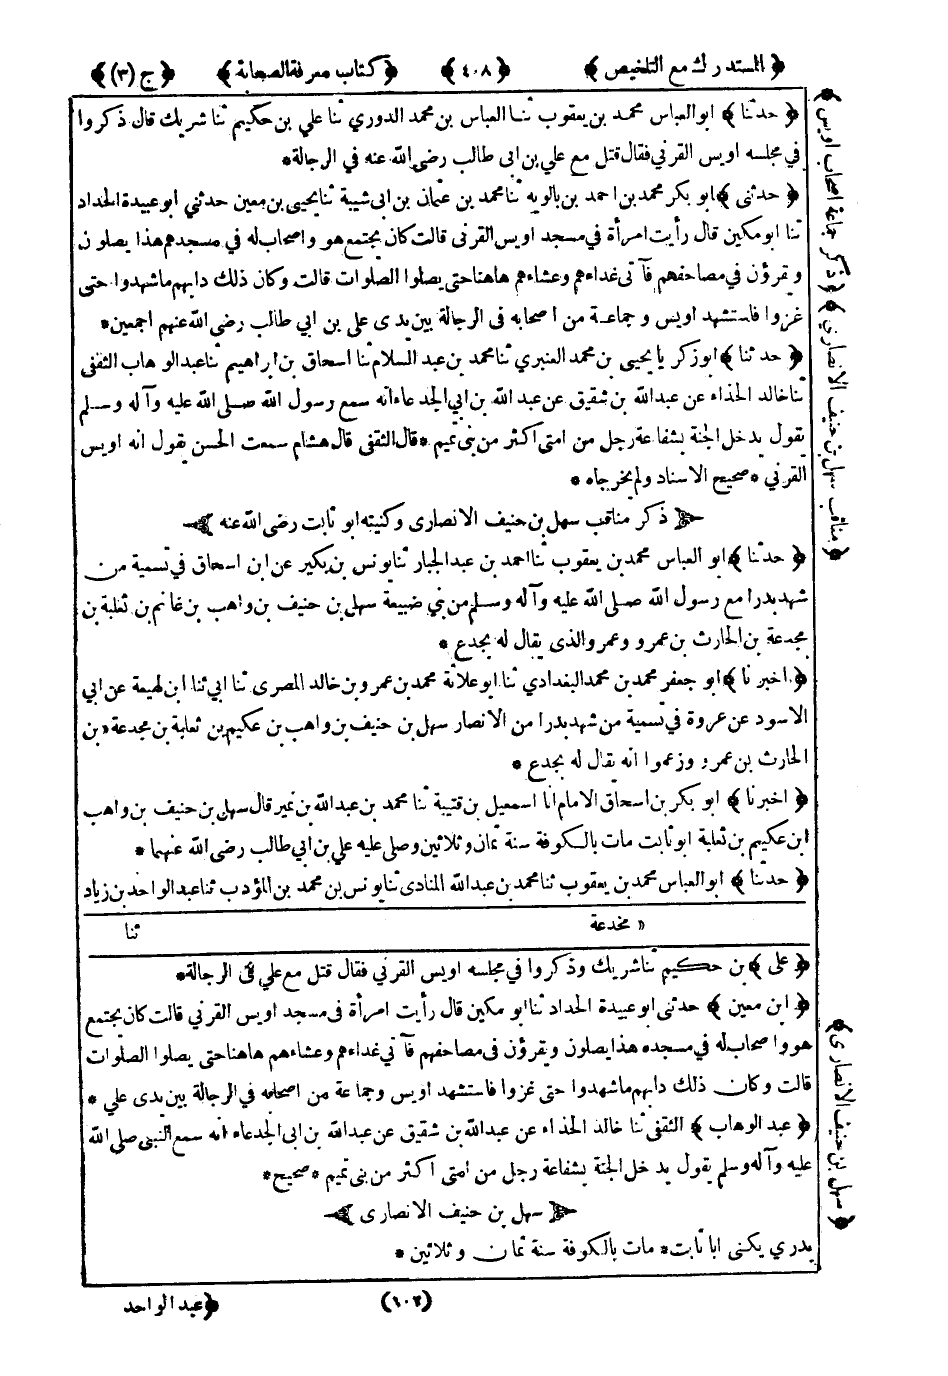 ﴿ المستدرك مع التلخيص ﴾ ﴿ ٤٠٨ ﴾ ﴿ كتاب معرفة الصحابة ﴾ ﴿ ج (٣) ﴾
﴿ حدثنا ﴾ ابو العباس محمد بن يعقوب ثنا العباس بن محمد الدوري ثنا علي بن حكيم ثنا شريك قال ذكروا
في مجلسه اويس القرني فقال قتل مع علي بن ابى طالب رضى الله عنه في الرجالة *
﴿ حدثنى ﴾ ابو بكر محمد بن احمد بن بالويه ثنا محمد بن عثمان بن ابى شيبة ثنا يحيى بن معين حدثني ابو عبيدة الحداد
ثنا ابو مكين قال رأيت امرأة في مسجد اويس القرنى قالت كان يجتمع هو واصحاب له في مسجدهم هذا يصلون
و يقرؤن في مصاحفهم فآتى غداءهم وعشاءهم هاهنا حتى يصلوا الصلوات قالت وكان ذلك دابهم ما شهدوا حتى
غزوا فاستشهد اويس وجماعة من اصحابه فى الرجالة بين يدى علي بن ابي طالب رضى الله عنهم اجمعين *
﴿ حدثنا ﴾ ابو زكريا يحيى بن محمد العنبري ثنا محمد بن عبد السلام ثنا اسحاق بن ابراهيم ثنا عبد الوهاب الثقفى
ثنا خالد الحذاء عن عبد الله بن شقيق عن عبد الله بن ابي الجدعاء انه سمع رسول الله صلى الله عليه وآله وسلم
يقول يدخل الجنة بشفاعة رجل من امتى اكثر من بنى تميم * قال الثقفى قال هشام سمعت الحسن يقول انه اويس
القرني * صحيح الاسناد ولم يخرجاه *
ذكر مناقب سهل بن حنيف الانصارى وكنيته ابو ثابت رضى الله عنه
﴿ حدثنا ﴾ ابو العباس محمد بن يعقوب ثنا احمد بن عبد الجبار ثنا يونس بن بكير عن ابن اسحاق في تسمية من
شهد بدرا مع رسول الله صلى الله عليه وآله وسلم من بني ضبيعة سهل بن حنيف بن واهب بن غانم بن ثعلبة بن
مجدعة بن الحارث بن عمرو وعمرو الذى يقال له بجدع *
﴿ اخبرنا ﴾ ابو جعفر محمد بن محمد البغدادي ثنا ابو علاثة محمد بن عمرو بن خالد المصرى ثنا ابي ثنا ابن لهيعة عن ابي
الاسود عن عروة في تسمية من شهد بدرا من الانصار سهل بن حنيف بن واهب بن عكيم بن ثعلبة بن مجدعة « بن
الحارث بن عمرو وزعموا انه يقال له بجدع *
﴿ اخبرنا ﴾ ابو بكر بن اسحاق الامام انا اسمعيل بن قتيبة ثنا محمد بن عبد الله بن نمير قال سهل بن حنيف بن واهب
ابن عكيم بن ثعلبة ابو ثابت مات بالكوفة سنة ثمان وثلاثين وصلى عليه علي بن ابي طالب رضى الله عنهما *
﴿ حدثنا ﴾ ابو العباس محمد بن يعقوب ثنا محمد بن عبد الله المنادى ثنا يونس بن محمد بن المؤدب ثنا عبد الواحد بن زياد
« مخدعة ثنا
﴿ على ﴾ بن حكيم ثنا شريك وذكروا في مجلسه اويس القرني فقال قتل مع علي فى الرجالة *
﴿ ابن معين ﴾ حدثنى ابو عبيدة الحداد ثنا ابو مكين قال رأيت امرأة فى مسجد اويس القرني قالت كان يجتمع
هو واصحاب له في مسجده هذا يصلون ويقرؤن فى مصاحفهم فآتي غداءهم وعشاءهم هاهنا حتى يصلوا الصلوات
قالت وكان ذلك دابهم ما شهدوا حتى غزوا فاستشهد اويس وجماعة من اصحابه في الرجالة بين يدى علي *
﴿ عبد الوهاب ﴾ الثقفى ثنا خالد الحذاء عن عبد الله بن شقيق عن عبد الله بن ابى الجدعاء انه سمع النبى صلى الله
عليه وآله وسلم يقول يدخل الجنة بشفاعة رجل من امتى اكثر من بنى تميم * صحيح *
سهل بن حنيف الانصارى
بدري يكنى ابا ثابت * مات بالكوفة سنة ثمان وثلاثين *
﴿ ذكر جماعة اصحاب اويس ﴾
﴿ مناقب سهل بن حنيف الانصاري ﴾
﴿ سهل بن حنيف الانصارى ﴾
(١٠٢) ﴿ عبد الواحد